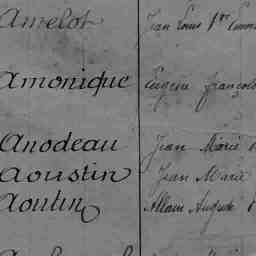 Amelot Jean Louis
Amonique Eugène François
Anodeau Jean Marie
Aoustin Jean Marie
Aoutin Allain Auguste